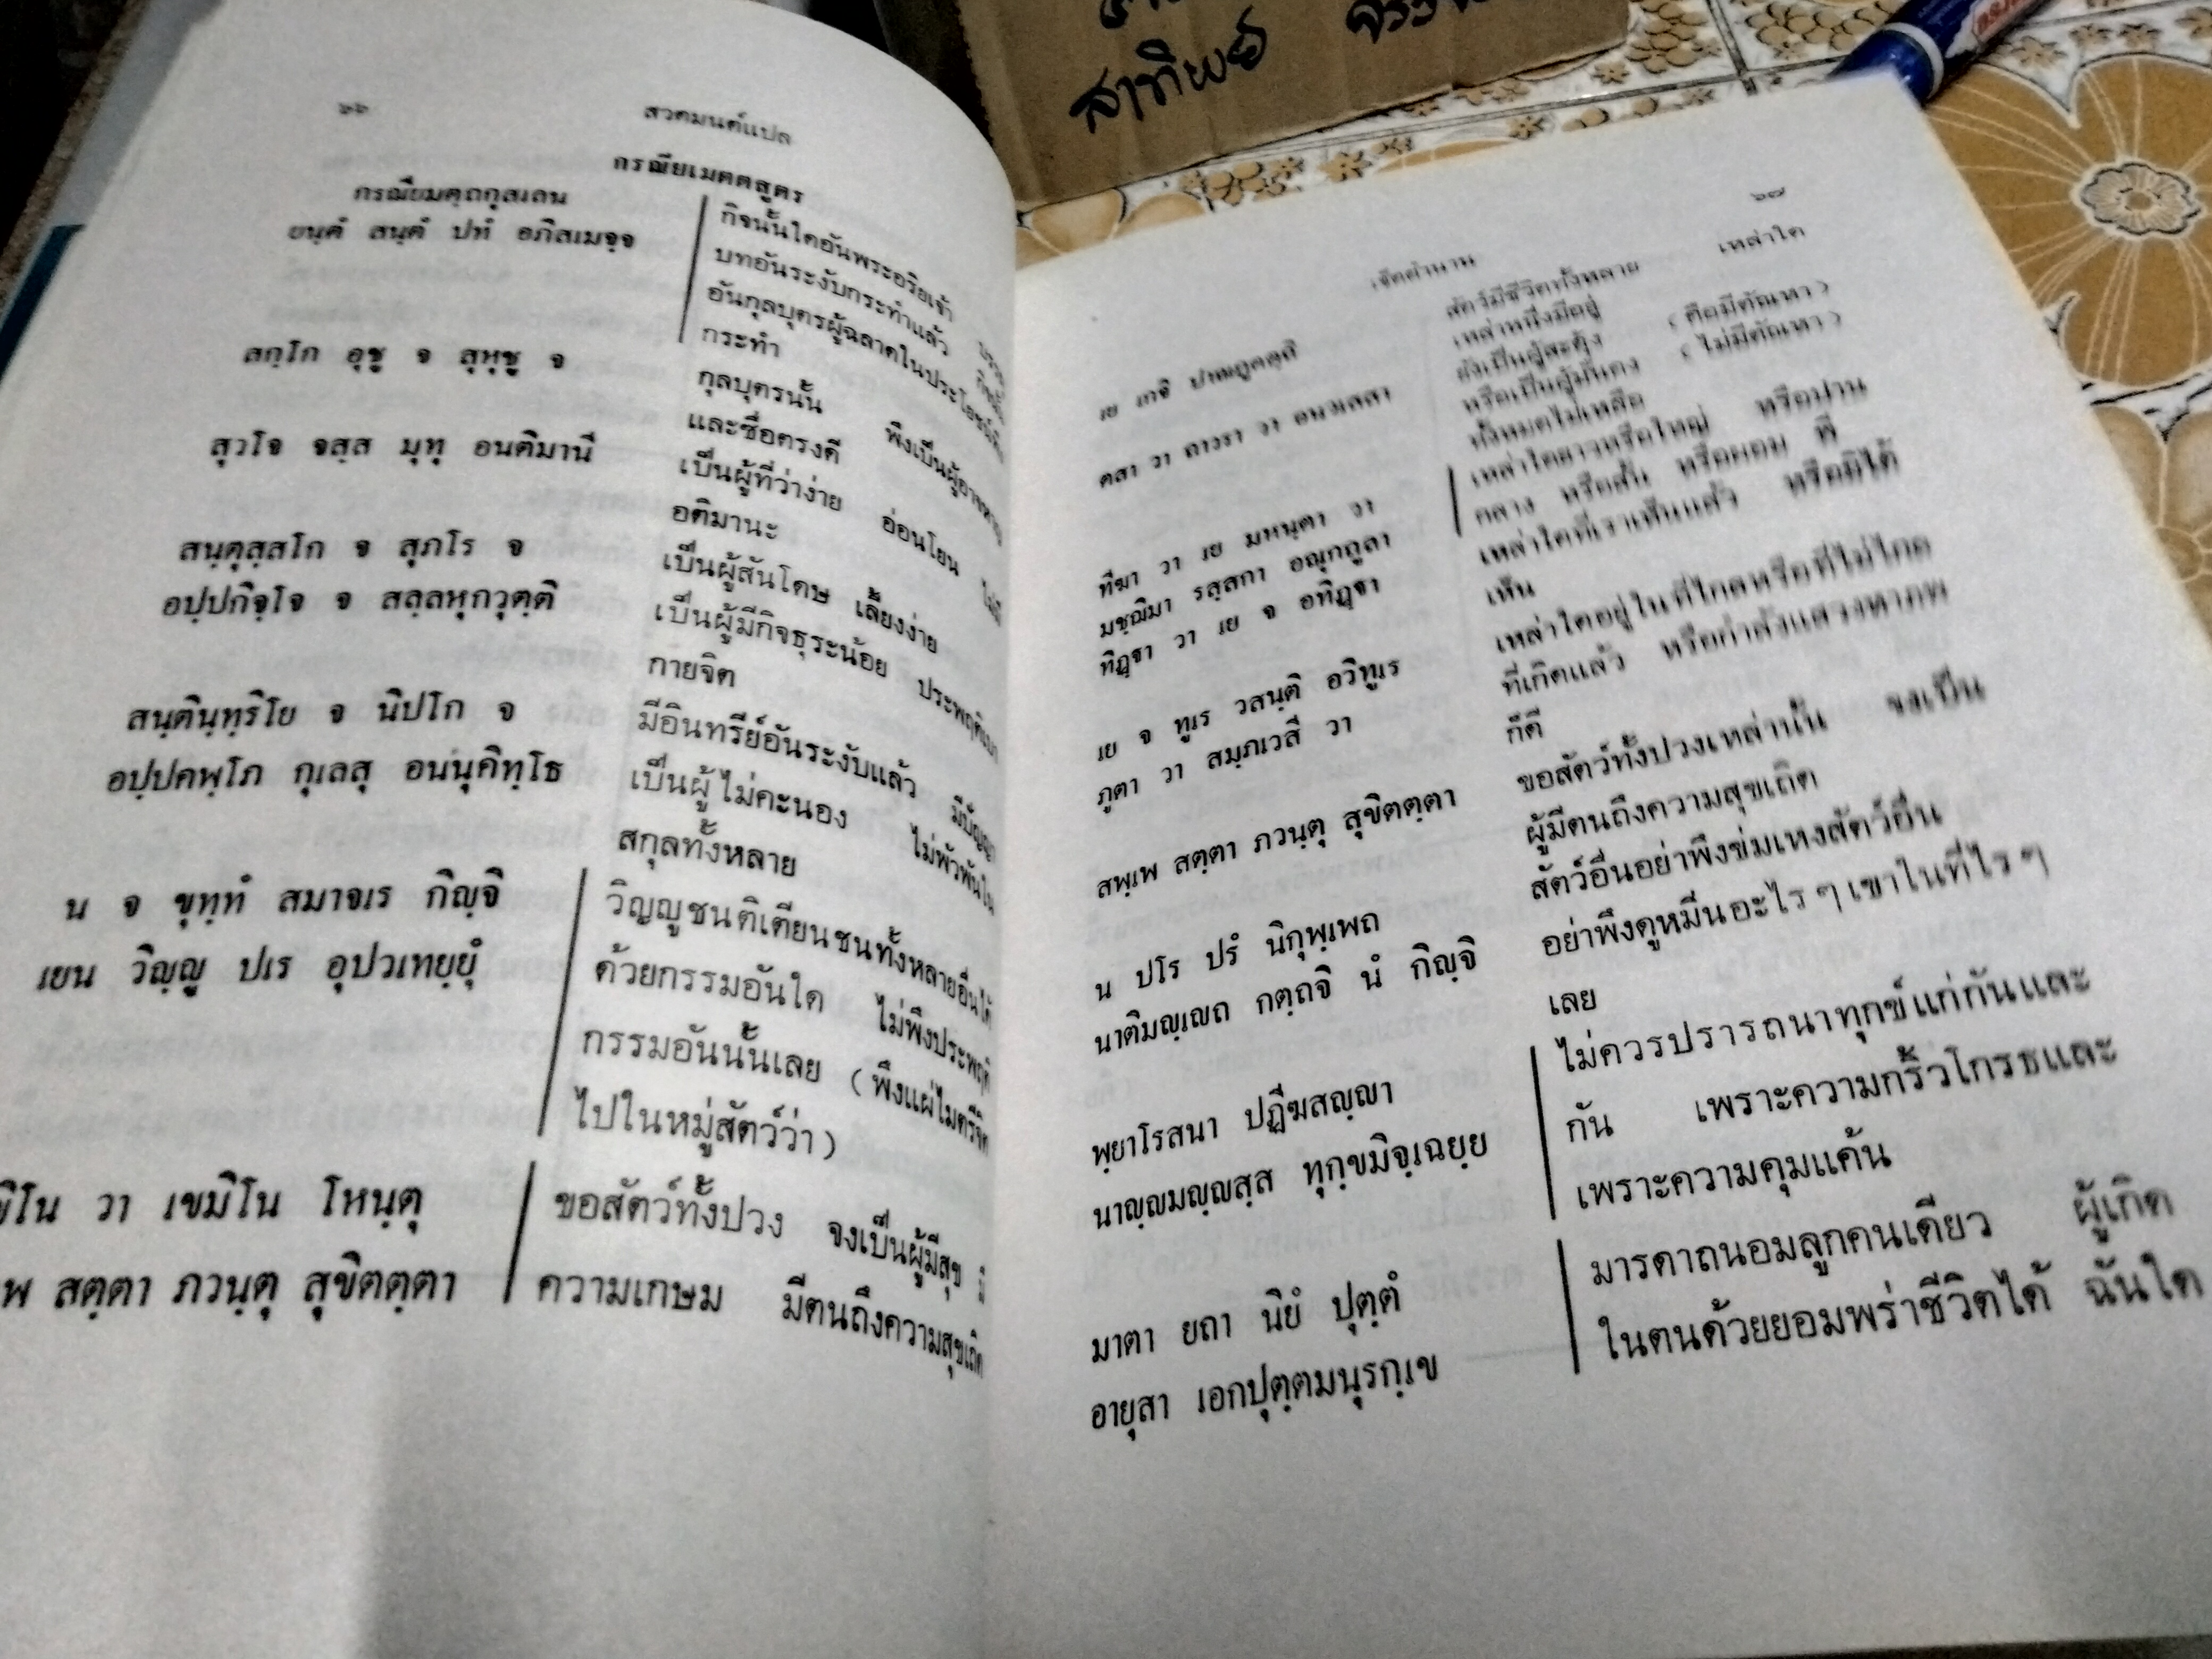 สาทิพย์
๖๖ สวดมนต์แปล
กรณียเมตตสูตร
กรณียมตฺถกุสเลน
ยนฺตํ สนฺตํ ปทํ อภิสเมจฺจ
สกฺโก อุชู จ สุหุชู จ
สุวโจ จสฺส มุทุ อนติมานี
สนฺตุสฺสโก จ สุภโร จ
อปฺปกิจฺโจ จ สลฺลหุกวุตฺติ
สนฺตินฺทฺริโย จ นิปโก จ
อปฺปคพฺโภ กุเลสุ อนนุคิทฺโธ
น จ ขุทฺทํ สมาจเร กิญฺจิ
เยน วิญฺญู ปเร อุปวเทยฺยุํ
วา เขมิโน โหนฺตุ
สตฺตา ภวนฺตุ สุขิตตฺตา
กิจนั้นใดอันพระอริยเจ้า
บทอันระงับกระทำแล้ว
อันกุลบุตรผู้ฉลาดในประโยชน์
กระทำ
กุลบุตรนั้น พึงเป็นผู้อาจหาญ
และซื่อตรงดี
เป็นผู้ที่ว่าง่าย อ่อนโยน ไม่มี
อติมานะ
เป็นผู้สันโดษ เลี้ยงง่าย
เป็นผู้มีกิจธุระน้อย ประพฤติเบา
กายจิต
มีอินทรีย์อันระงับแล้ว มีปัญญา
เป็นผู้ไม่คะนอง ไม่พัวพันใน
สกุลทั้งหลาย
วิญญูชนติเตียนชนทั้งหลายอื่นได้
ด้วยกรรมอันใด ไม่พึงประพฤติ
กรรมอันนั้นเลย (พึงแผ่ไมตรีจิต
ไปในหมู่สัตว์ว่า)
ขอสัตว์ทั้งปวง จงเป็นผู้มีสุข มี
ความเกษม มีตนถึงความสุขเถิด
เจ็ดตำนาน ๖๗
เย เกจิ ปาณภูตตฺถิ
ตสา วา ถาวรา วา อนวเสสา
ทีฆา วา เย มหนฺตา วา
มชฺฌิมา รสฺสกา อณุกถูลา
ทิฏฺฐา วา เย จ อทิฏฺฐา
เย จ ทูเร วสนฺติ อวิทูเร
ภูตา วา สมฺภเวสี วา
สพฺเพ สตฺตา ภวนฺตุ สุขิตตฺตา
น ปโร ปรํ นิกุพฺเพถ
นาติมญฺเญถ กตฺถจิ นํ กิญฺจิ
พฺยาโรสนา ปฏีฆสญฺญา
นาญฺญมญฺญสฺส ทุกฺขมิจฺเฉยฺย
มาตา ยถา นิยํ ปุตฺตํ
อายุสา เอกปุตฺตมนุรกฺเข
สัตว์มีชีวิตทั้งหลาย เหล่าใด
เหล่าหนึ่งมีอยู่
ยังเป็นผู้สะดุ้ง (คือมีตัณหา)
หรือเป็นผู้มั่นคง (ไม่มีตัณหา)
ทั้งหมดไม่เหลือ
เหล่าใดยาวหรือใหญ่ หรือปาน
กลาง หรือสั้น หรือผอม พี
เหล่าใดที่เราเห็นแล้ว หรือมิได้
เห็น
เหล่าใดอยู่ในที่ไกลหรือที่ไม่ไกล
ที่เกิดแล้ว หรือกำลังแสวงหาภพ
ก็ดี
ขอสัตว์ทั้งปวงเหล่านั้น จงเป็น
ผู้มีตนถึงความสุขเถิด
สัตว์อื่นอย่าพึงข่มเหงสัตว์อื่น
อย่าพึงดูหมิ่นอะไร ๆ เขาในที่ไร ๆ
เลย
ไม่ควรปรารถนาทุกข์แก่กันและ
กัน เพราะความกริ้วโกรธและ
เพราะความคุมแค้น
มารดาถนอมลูกคนเดียว ผู้เกิด
ในตนด้วยยอมพร่าชีวิตได้ ฉันใด